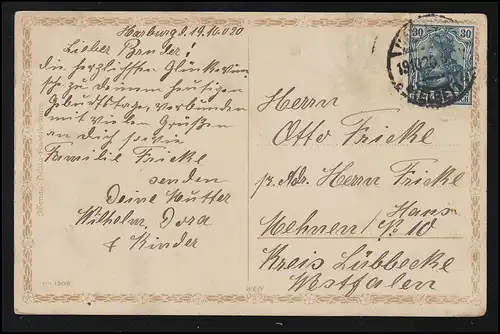 Harburg d. 19.10.020
Lieber Bruder!
die herzlichsten Glückwün-
sche zu deinem heutigen
Geburtstage, verbunden
mit vielen Grüßen
an dich sowie
Familie Fricke
senden
Deine Mutter
Wilhelm, Dora
& Kinder
30 30
Herrn
Otto Fricke
p. Adr. Herrn Fricke
Haus
Mehnen No 10
Kreis Lübbecke
Westfalen